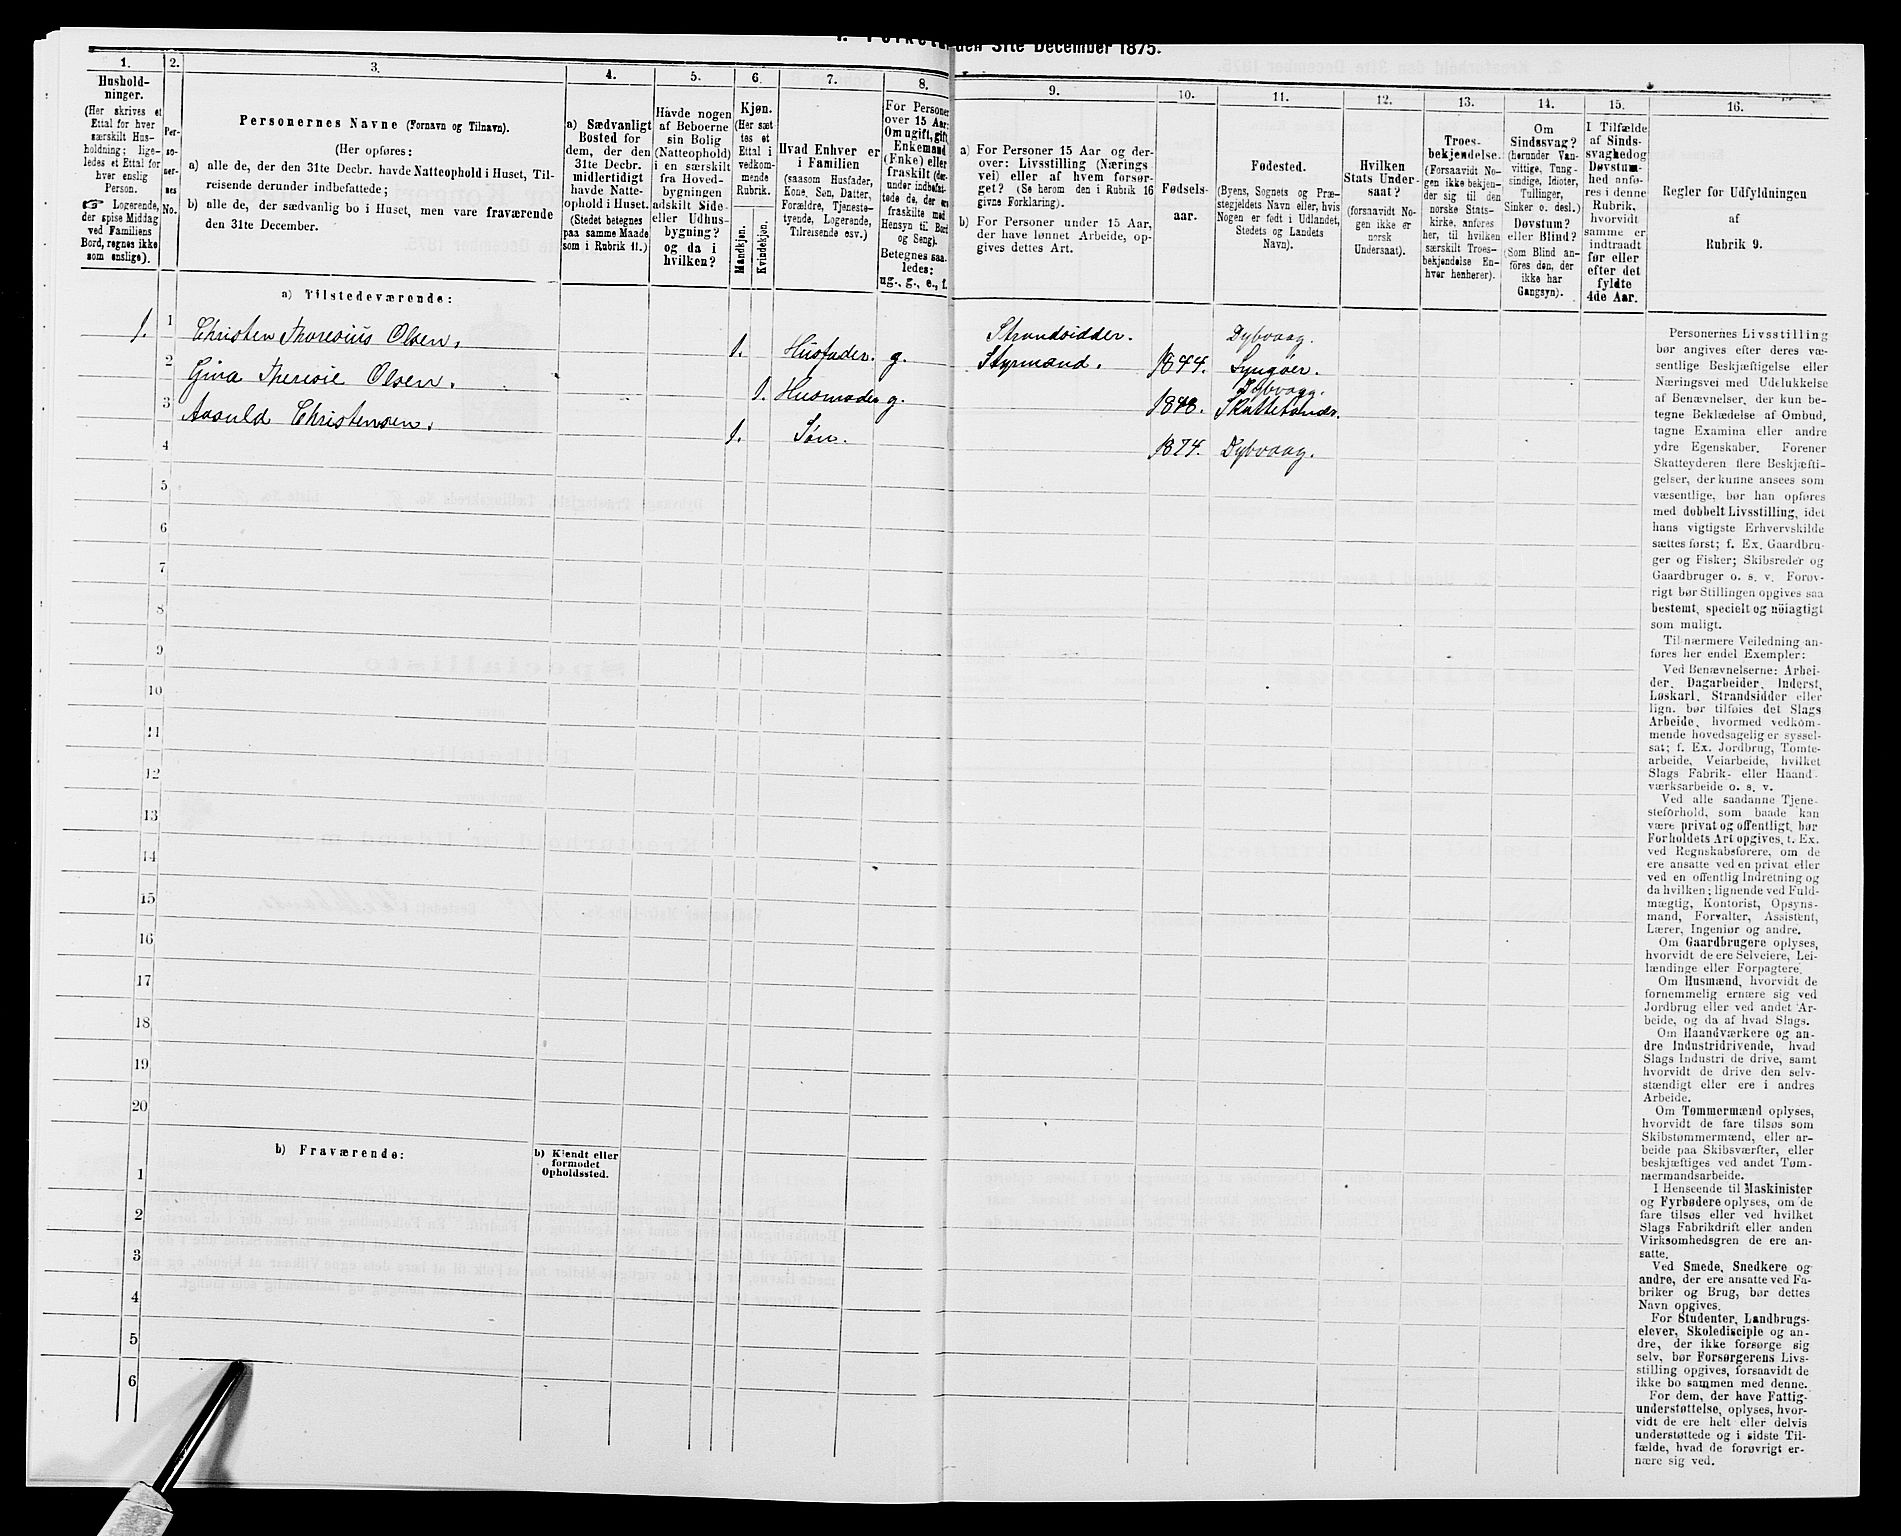 den 31te December 1875.
1.
Hushold-
ninger.
(Her skrives et
Ettal for hver
særskilt Hus-
holdning; lige-
ledes et Ettal for
hver enslig
Person.
☞ Logerende,
der spise Middag
ved Familiens
Bord, regnes ikke
som enslige).
2.
Per-
so-
ner-
nes
No.
3.
Personernes Navne (Fornavn og Tilnavn).
(Her opføres:
a) alle de, der den 31te Decbr. havde Natteophold i Huset, Til-
reisende derunder indbefattede;
b) alle de, der sædvanlig bo i Huset, men vare fraværende
den 31te December.
4.
a) Sædvanligt
Bosted for
dem, der den
31te Decbr.
midlertidigt
havde Natte-
ophold i Huset.
(Stedet betegnes
paa samme Maade
som i Rubrik 11.)
5.
Havde nogen
af Beboerne
sin Bolig
(Natteophold)
i en særskilt
fra Hoved-
bygningen
adskilt Side-
eller Udhus-
bygning?
og da i
hvilken?
6.
Kjøn.
(Her sæt
tes et
Ettal i
vedkom-
mende
Rubrik.
Mandkjøn.
Kvindekjøn.
7.
Hvad Enhver er
i Familien
(saasom Husfader,
Kone, Søn, Datter,
Forældre, Tjeneste-
tyende, Logerende,
Tilreisende osv.)
8.
For Personer
over 15 Aar:
Om ugift, gift,
Enkemand
(Enke) eller
fraskilt (der-
under indbefat-
tede de, der ere
fraskilte med
Hensyn til Bord
og Seng).
Betegnes saa-
ledes:
ug., g., e., f.
9.
a) For Personer 15 Aar og der-
over: Livsstilling (Nærings-
vei) eller af hvem forsør-
get? (Se herom den i Rubrik 16
givne Forklaring).
b) For Personer under 15 Aar,
der have lønnet Arbeide, op-
gives dettes Art.
10.
Fødsels-
aar.
11.
Fødested.
(Byens, Sognets og Præ-
stegjeldets Navn eller, hvis
Nogen er født i Udlandet,
Stedets og Landets
Navn).
12.
Hvilken
Stats Under-
saat?
(forsaavidt No-
gen ikke er
norsk
Undersaat).
13.
Troes-
bekjendelse.
(Forsaavidt No-
gen ikke bekjen-
der sig til den
norske Stats-
kirke, anføres
her, til hvilken
særskilt Troes-
bekjendelse En-
hver henhører).
14.
Om
Sindssvag?
(herunder Van-
vittige, Tung-
sindige, Idioter,
Tullinger,
Sinker o. desl.)
Døvstum?
eller Blind?
(Som Blind an-
føres den, der
ikke har
Gangsyn).
15.
I Tilfælde
af Sinds-
svaghed og
Døvstum-
hed anfø-
res i denne
Rubrik,
hvorvidt
samme er
indtraadt
før eller
efter det
fyldte
4de Aar.
16.
Regler for Udfyldningen
af
Rubrik 9.
a) Tilstedeværende:
1. 1 Christen Thoresius Olsen. 1. Husfader. g. Strandsidder. Styrmand. 1844. Dybvaag. Lyngøer.
2 Gina Theresie Olsen. 1. Husmoder g. 1848. Dybvaag. Skattebonde.
3 Aasuld Christensen. 1. Søn. 1874. Dybvaag.
4
5
6
7
8
9
10
11
12
13
14
15
16
17
18
19
20
b) Fraværende:
b) Kjendt eller
formodet
Opholdssted.
1
2
3
4
5
6
Personernes Livsstilling
bør angives efter deres væ-
sentlige Beskjæftigelse eller
Næringsvei med Udelukkelse
af Benævnelser, der kun be-
tegne Beklædelse af Ombud,
tagne Examina eller andre
ydre Egenskaber. Forener
Skatteyderen flere Beskjæfti-
gelser, der kunne ansees som
væsentlige, bør han opføres
med dobbelt Livsstilling, idet
hans vigtigste Erhvervskilde
sættes først; f. Ex. Gaardbru-
ger og Fisker; Skibsreder og
Gaardbruger o. s. v. Forøv-
rigt bør Stillingen opgives saa
bestemt, specielt og nöiagtigt
som muligt.
Til nærmere Veiledning an-
føres her endel Exempler:
Ved Benævnelserne: Arbei-
der, Dagarbeider, Inderst,
Løskarl, Strandsidder eller
lign. bør tilføies det Slags
Arbeide, hvormed vedkom-
mende hovedsagelig er syssel-
sat; f. Ex. Jordbrug, Tomte-
arbeide, Veiarbeide, hvilket
Slags Fabrik- eller Haand-
værksarbeide o. s. v.
Ved alle saadanne Tjene-
steforhold, som baade kan
være privat og offentligt, bør
Forholdets Art opgives, t. Ex.
ved Regnskabsførere, om de
ere ansatte ved en privat eller
ved en offentlig Indretning og
da hvilken; lignende ved Fuld-
mægtig, Kontorist, Opsyns-
mand, Forvalter, Assistent,
Lærer, Ingeniør og andre.
Om Gaardbrugere oplyses,
hvorvidt de ere Selveiere, Lei-
lændinge eller Forpagtere.
Om Husmænd, hvorvidt de
fornemmelig ernære sig ved
Jordbrug eller ved andet Ar-
beide, og da af hvad Slags.
Om Haandværkere og an-
dre Industridrivende, hvad
Slags Industri de drive, samt
hvorvidt de drive den selv-
stændigt eller ere i andres
Arbeide.
Om Tømmermænd oplyses,
hvorvidt de fare tilsøs som
Skibstømmermænd, eller ar-
beide paa Skibsværfter, eller
beskjæftiges ved andet Tøm-
mermandsarbeide.
I Henseende til Maskinister
og Fyrbødere oplyses, om de
fare tilsøs eller ved hvilket
Slags Fabrikdrift eller anden
Virksomhedsgren de ere an-
satte.
Ved Smede, Snedkere og
andre, der ere ansatte ved Fa-
briker og Brug, bør dettes
Navn opgives.
For Studenter, Landbrugs-
elever, Skoledisciple og an-
dre, der ikke forsørge sig
selv, bør Forsørgerens Livs-
stilling opgives, forsaavidt de
ikke bo sammen med denne.
For dem, der have Fattig-
understøttelse, oplyses, hvor-
vidt de ere helt eller delvis
understøttede og i sidste Til-
fælde, hvad de forøvrigt er-
nære sig ved.